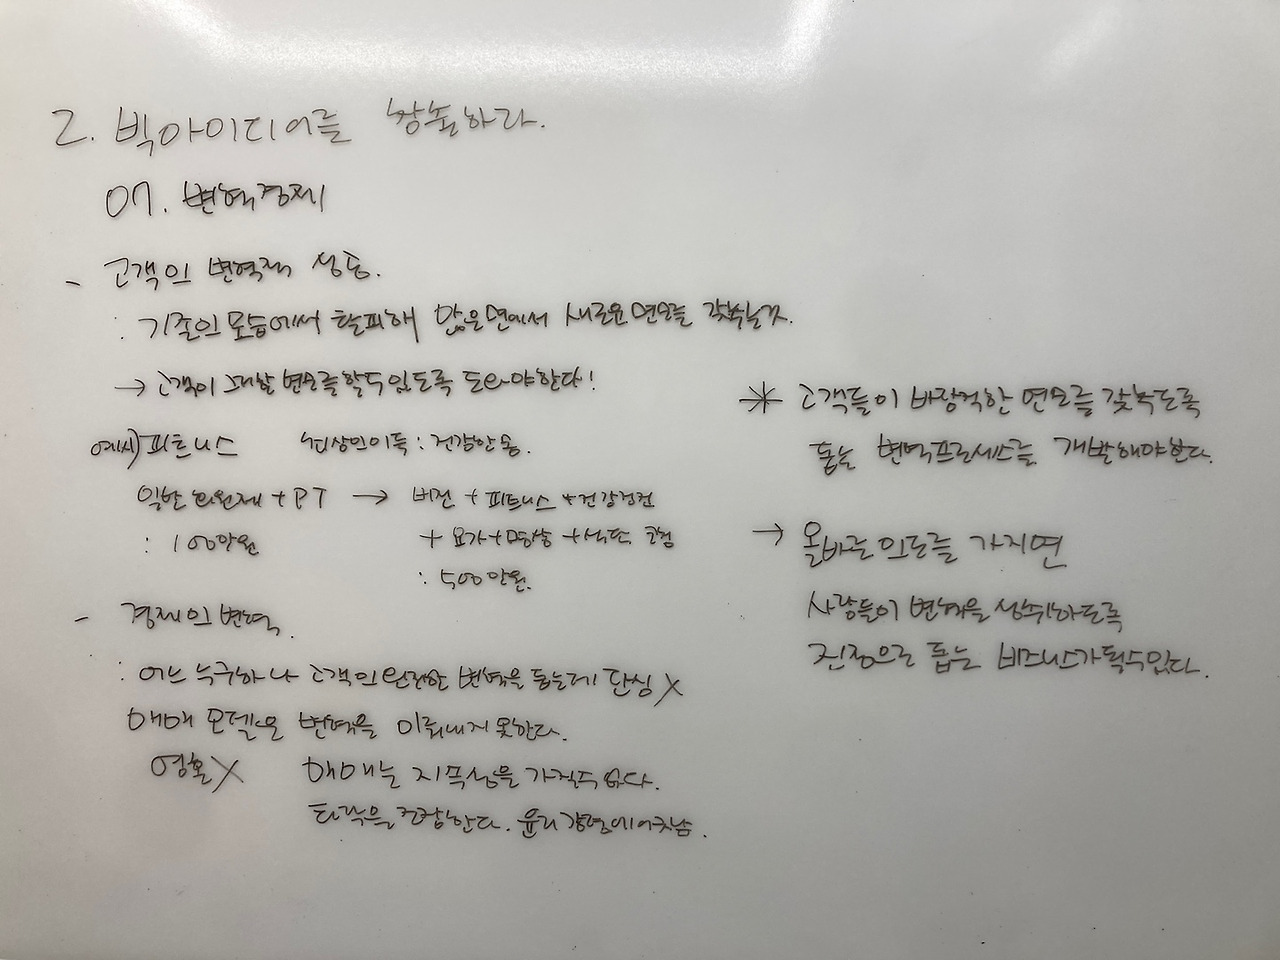 2. 빅아이디어를 창출하라.
07. 변혁경제
- 고객의 변혁적 상승.
: 기존의 모습에서 탈피해 많은면에서 새로운면모를 갖추는것.
→ 고객이 그러한 변모를할수있도록 도와야한다!
예시) 피트니스 최상의이득 : 건강한 몸.
일반 회원제 + PT → 비전 + 피트니스 + 건강검진
: 100만원 + 요가 + 명상 + 식단 코칭
: 500만원.
- 경제의 변혁.
: 어느 누구하나 고객의 변혁을 돕는데 관심 X
매매 모델은 변혁을 이뤄내지 못한다.
영혼 X 매매는 지속성을 가질수 없다.
타락을 조장한다. 윤리경영에 어긋남.
* 고객들이 바람직한 면모를 갖추도록
돕는 변혁프로세스를 개발해야한다.
→ 올바른 의도를 가지면
사람들이 변혁을 성취하도록
진정으로 돕는 비즈니스가 될수있다.